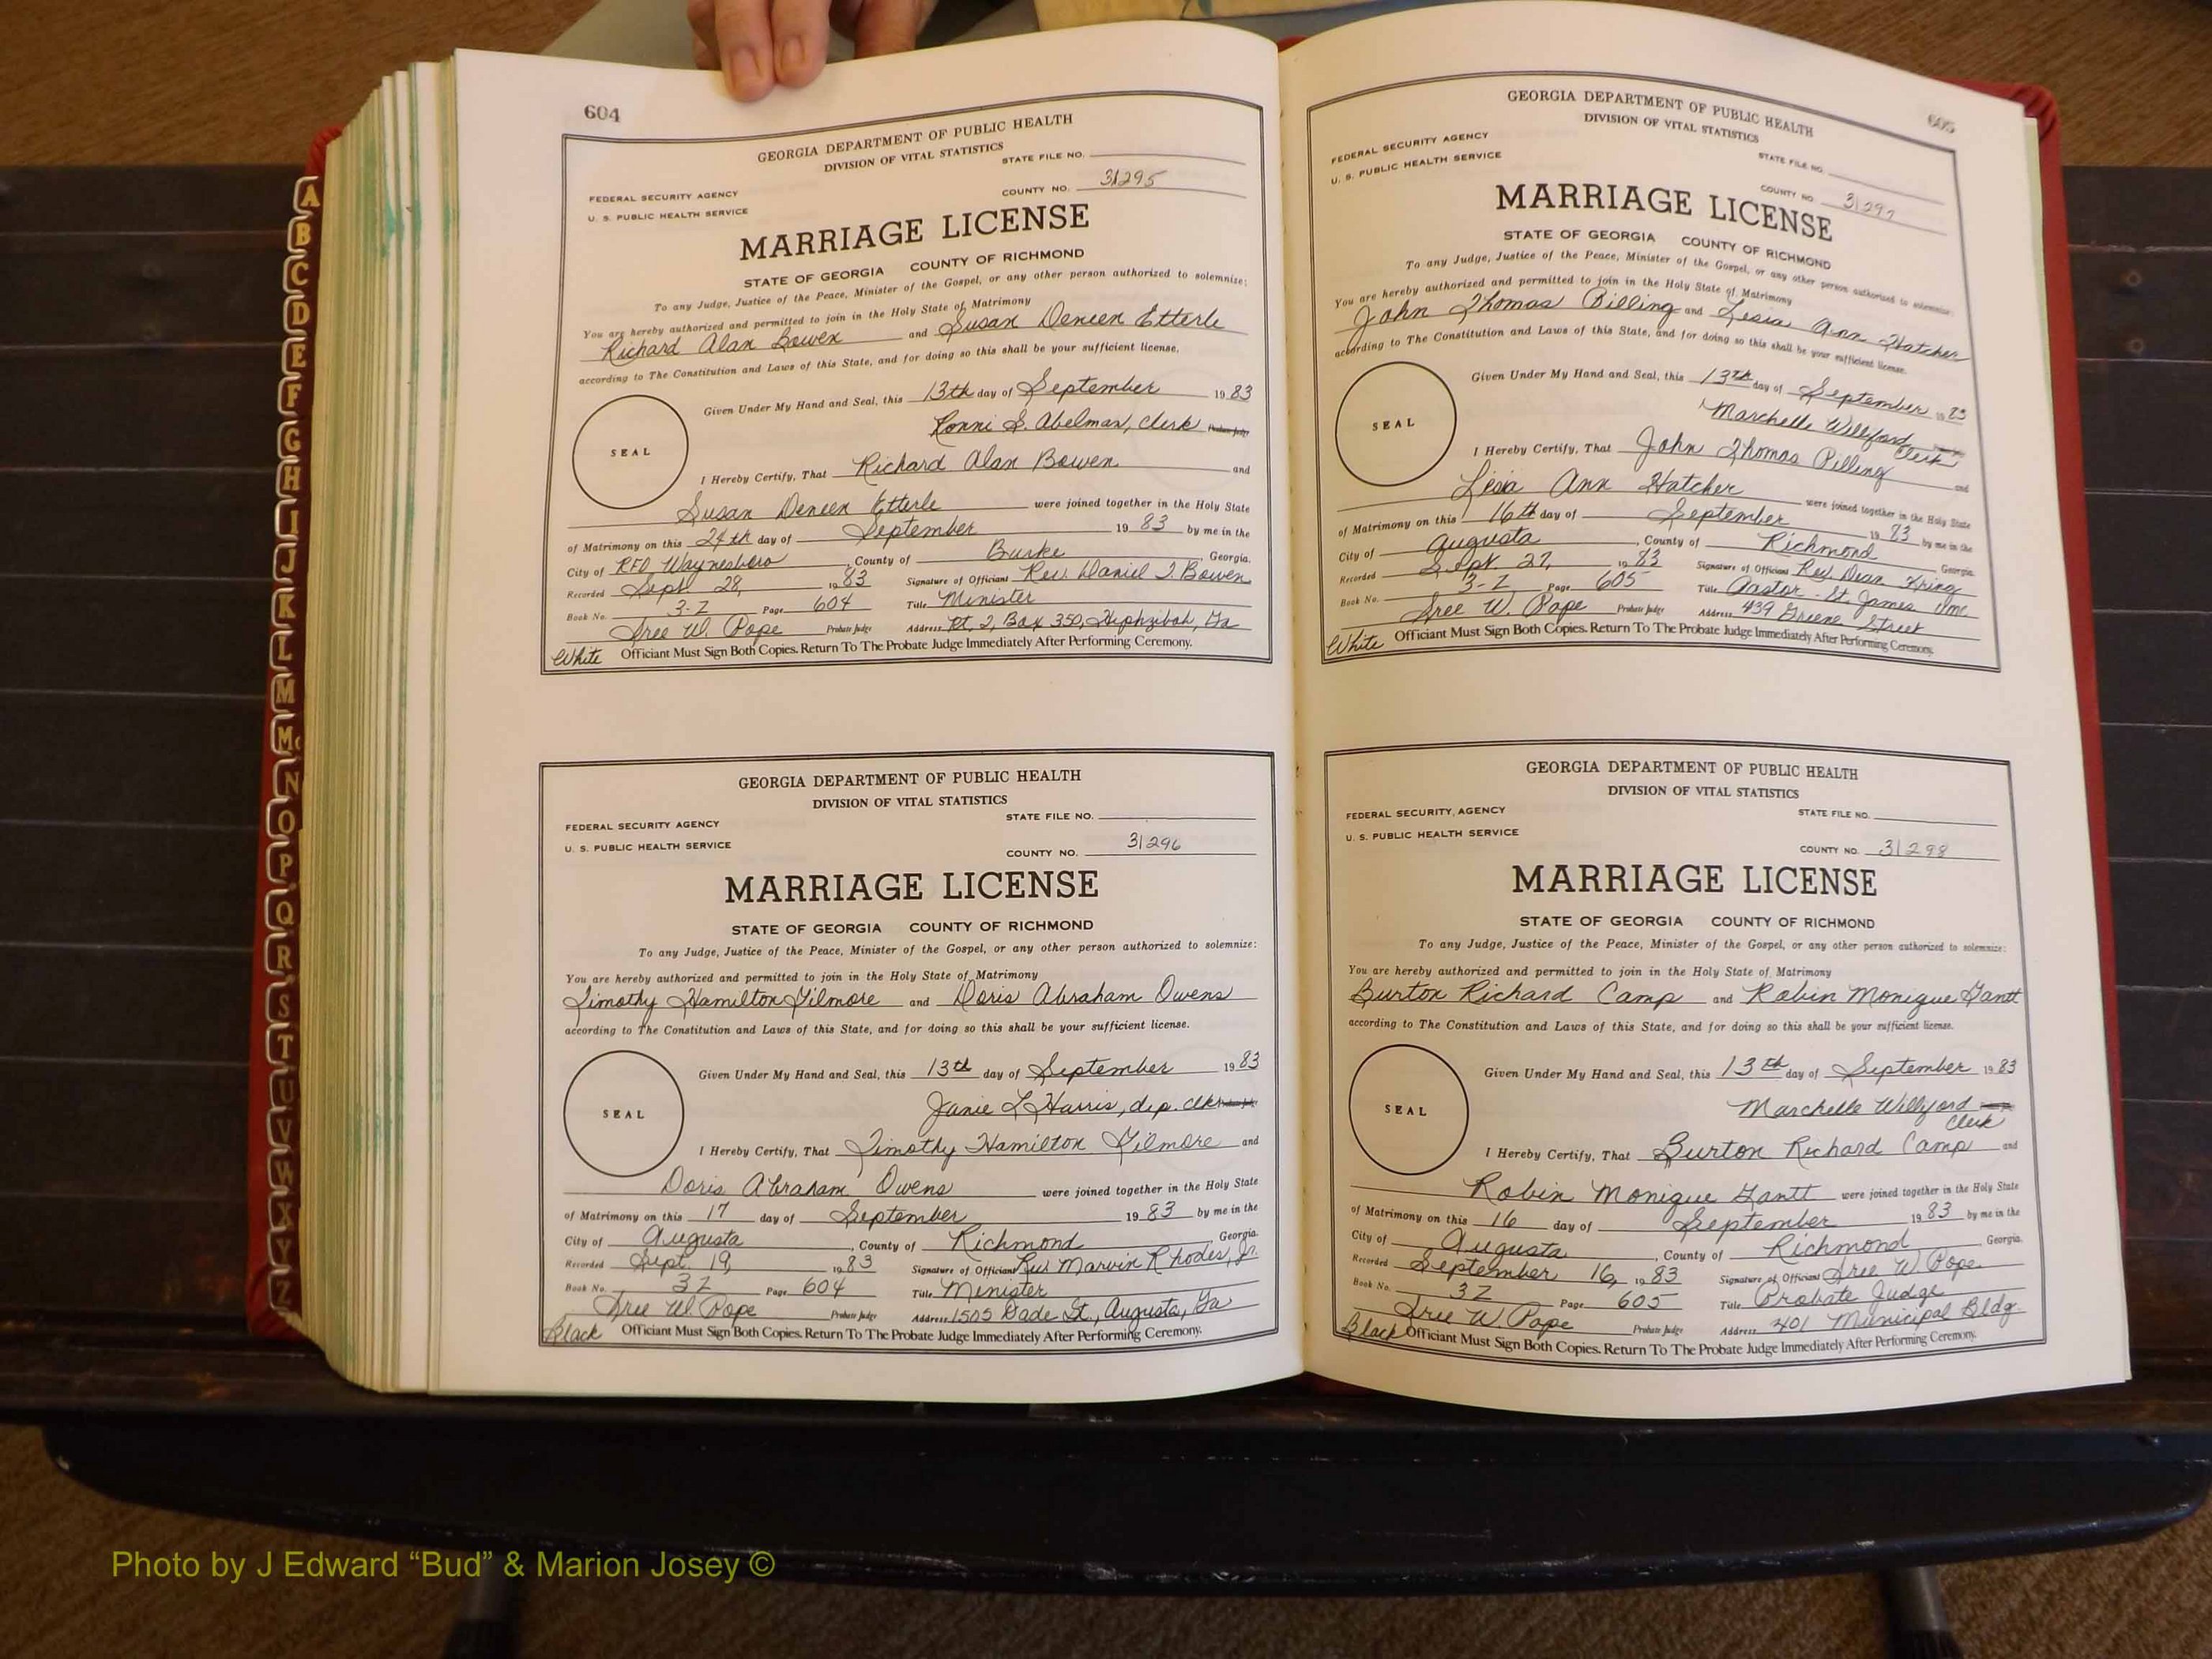 A
B
C
D
E
F
G
H
I
J
K
L
M
Mc
N
O
P
Q
R
S
T
U
V
W
X
Y
Z
604
GEORGIA DEPARTMENT OF PUBLIC HEALTH
DIVISION OF VITAL STATISTICS
STATE FILE NO.
FEDERAL SECURITY AGENCY
U. S. PUBLIC HEALTH SERVICE
COUNTY NO. 31295
MARRIAGE LICENSE
STATE OF GEORGIA COUNTY OF RICHMOND
To any Judge, Justice of the Peace, Minister of the Gospel, or any other person authorized to solemnize:
You are hereby authorized and permitted to join in the Holy State of Matrimony
Richard Alan Bowen and Susan Deneen Etterle
according to The Constitution and Laws of this State, and for doing so this shall be your sufficient license.
Given Under My Hand and Seal, this 13th day of September 1983
Ronni S. Abelman, Clerk Probate Judge
SEAL
I Hereby Certify, That Richard Alan Bowen and
Susan Deneen Etterle were joined together in the Holy State
of Matrimony on this 24th day of September 1983 by me in the
City of RFD Waynesboro, County of Burke, Georgia.
Recorded Sept. 28, 1983 Signature of Officiant Rev. Daniel J. Bowen
Book No. 3-Z Page 604 Title Minister
Sree W. Pope Probate Judge Address Rt. 2, Box 350, Hephzibah, Ga
White Officiant Must Sign Both Copies. Return To The Probate Judge Immediately After Performing Ceremony.
GEORGIA DEPARTMENT OF PUBLIC HEALTH
DIVISION OF VITAL STATISTICS
STATE FILE NO.
FEDERAL SECURITY AGENCY
U. S. PUBLIC HEALTH SERVICE
COUNTY NO. 31296
MARRIAGE LICENSE
STATE OF GEORGIA COUNTY OF RICHMOND
To any Judge, Justice of the Peace, Minister of the Gospel, or any other person authorized to solemnize:
You are hereby authorized and permitted to join in the Holy State of Matrimony
Timothy Hamilton Gilmore and Doris Abraham Owens
according to The Constitution and Laws of this State, and for doing so this shall be your sufficient license.
Given Under My Hand and Seal, this 13th day of September 1983
Janie L Harris, dep. clk Probate Judge
SEAL
I Hereby Certify, That Timothy Hamilton Gilmore and
Doris Abraham Owens were joined together in the Holy State
of Matrimony on this 17 day of September 1983 by me in the
City of Augusta, County of Richmond, Georgia.
Recorded Sept. 19, 1983 Signature of Officiant Rev Marvin Rhodes, Jr.
Book No. 3Z Page 604 Title Minister
Sree W. Pope Probate Judge Address 1505 Dade St., Augusta, Ga
Black Officiant Must Sign Both Copies. Return To The Probate Judge Immediately After Performing Ceremony.
605
GEORGIA DEPARTMENT OF PUBLIC HEALTH
DIVISION OF VITAL STATISTICS
FEDERAL SECURITY AGENCY
STATE FILE NO.
U. S. PUBLIC HEALTH SERVICE
COUNTY NO. 31297
MARRIAGE LICENSE
STATE OF GEORGIA COUNTY OF RICHMOND
To any Judge, Justice of the Peace, Minister of the Gospel, or any other person authorized to solemnize:
You are hereby authorized and permitted to join in the Holy State of Matrimony
John Thomas Pilling and Lesia Ann Hatcher
according to The Constitution and Laws of this State, and for doing so this shall be your sufficient license.
Given Under My Hand and Seal, this 13th day of September 1983
Marchelle Willyford Clerk
SEAL
I Hereby Certify, That John Thomas Pilling and
Lesia Ann Hatcher were joined together in the Holy State
of Matrimony on this 16th day of September 1983 by me in the
City of Augusta, County of Richmond Georgia.
Recorded Sept 27, 1983 Signature of Officiant Rev. Dean
Book No. 3-Z Page 605 Title Pastor - St. James UMC
Sree W. Pope Probate Judge Address 439 Greene Street
White Officiant Must Sign Both Copies. Return To The Probate Judge Immediately After Performing Ceremony.
GEORGIA DEPARTMENT OF PUBLIC HEALTH
DIVISION OF VITAL STATISTICS
FEDERAL SECURITY AGENCY
STATE FILE NO.
U. S. PUBLIC HEALTH SERVICE
COUNTY NO. 31298
MARRIAGE LICENSE
STATE OF GEORGIA COUNTY OF RICHMOND
To any Judge, Justice of the Peace, Minister of the Gospel, or any other person authorized to solemnize:
You are hereby authorized and permitted to join in the Holy State of Matrimony
Burton Richard Camp and Robin Monique Gantt
according to The Constitution and Laws of this State, and for doing so this shall be your sufficient license.
Given Under My Hand and Seal, this 13th day of September 1983
Marchelle Willyford
Clerk
SEAL
I Hereby Certify, That Burton Richard Camp and
Robin Monique Gantt were joined together in the Holy State
of Matrimony on this 16 day of September 1983 by me in the
City of Augusta, County of Richmond, Georgia.
Recorded September 16, 1983 Signature of Officiant Sree W Pope
Book No. 3Z Page 605 Title Probate Judge
Sree W. Pope Probate Judge Address 401 Municipal Bldg.
Black Officiant Must Sign Both Copies. Return To The Probate Judge Immediately After Performing Ceremony.
Photo by J Edward “Bud” & Marion Josey ©